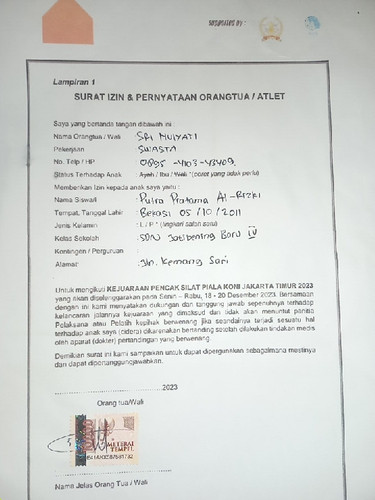 SUPPORTED BY :
Lampiran 1
SURAT IZIN & PERNYATAAN ORANGTUA / ATLET
Saya yang bertanda tangan dibawah ini :
Nama Orangtua / Wali : SRI MULYATI
Pekerjaan : SWASTA
No. Telp / HP : 0895-4103-43409
Status Terhadap Anak : Ayah / Ibu / Wali *(coret yang tidak perlu)
Memberikan Izin kepada anak saya yaitu :
Nama Siswa/i : Putra Pratama Al-Rizki
Tempat, Tanggal Lahir : Bekasi 05/10/2011
Jenis Kelamin : L / P * (lingkari salah satu)
Kelas Sekolah : SDN Jatibening Baru IV
Kontingen / Perguruan :
Alamat : Jln. Kemang Sari
Untuk mengikuti KEJUARAAN PENCAK SILAT PIALA KONI JAKARTA TIMUR 2023
yang akan diselenggarakan pada Senin – Rabu, 18 - 20 Desember 2023. Bersamaan
dengan ini kami menyatakan dukungan dan tanggung jawab sepenuhnya terhadap
kelancaran jalannya kejuaraan yang dimaksud dan tidak akan menuntut panitia
Pelaksana atau Pelatih kepihak berwenang jika seandainya terjadi sesuatu hal
terhadap anak saya (cidera) dikarenakan bertanding setelah dilakukan tindakan medis
oleh aparat (dokter) pertandingan yang berwenang.
Demikian surat ini kami sampaikan untuk dapat dipergunakan sebagaimana mestinya
dan dapat dipertanggungjawabkan.
.......................................2023
Orang tua/Wali
METERAI
TEMPEL
Nama Jelas Orang Tua / Wali